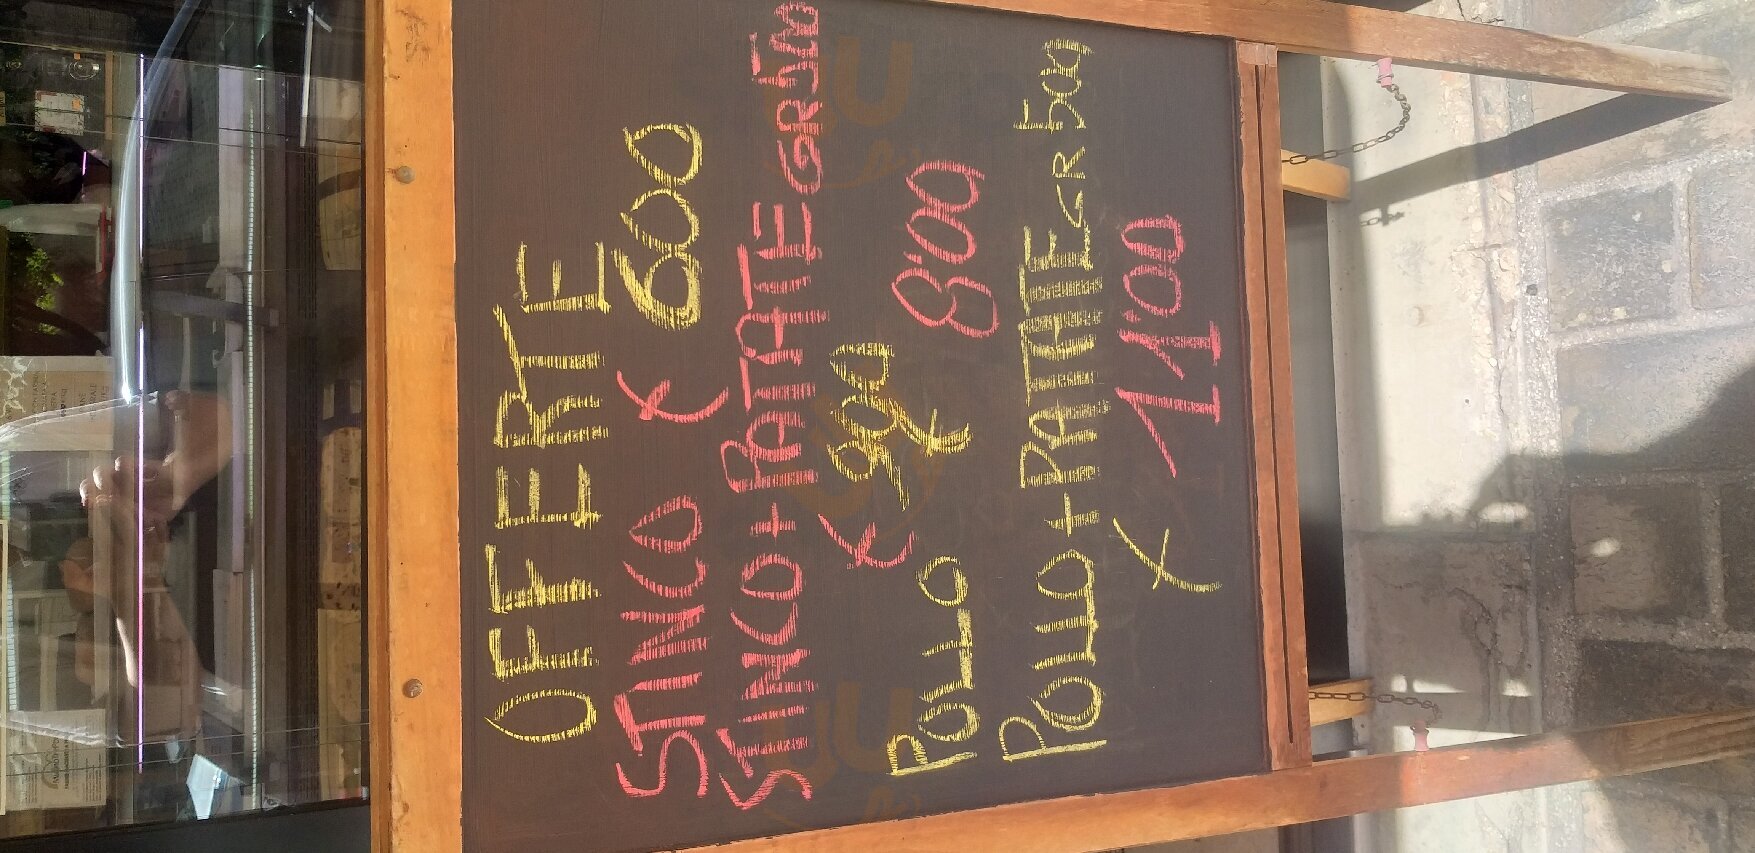 OFFERTE
STINCO € 6'00
STINCO + PATATE GR 500
€ 9'00
POLLO € 8'00
POLLO + PATATE GR 500
€ 11'00